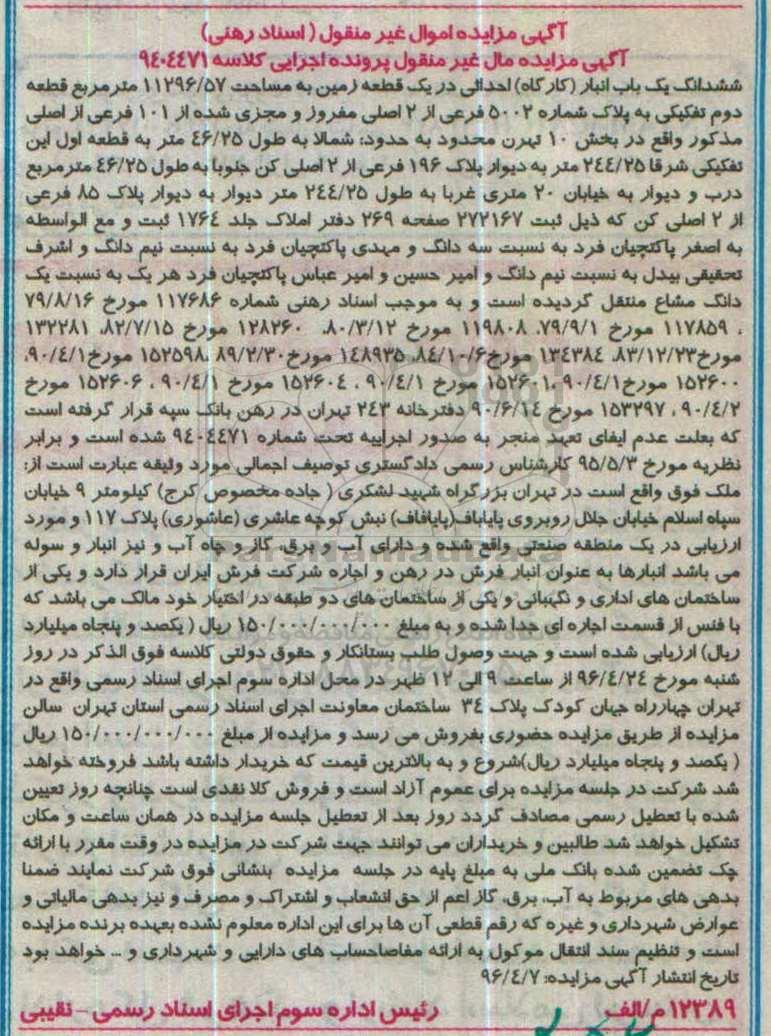 آگهی مزایده اموال غیر منقول ( اسناد رهنی)
آگهی مزایده مال غیر منقول پرونده اجرایی کلاسه ۹۴۰۴۴۷۱
ششدانگ یک باب انبار (کارگاه) احداثی در یک قطعه زمین به مساحت ۱۱۲۹۶/۵۷ مترمربع قطعه
دوم تفکیکی به پلاک شماره ۵۰۰۲ فرعی از ۲ اصلی مفروز و مجزی شده از ۱۰۱ فرعی از اصلی
مذکور واقع در بخش ۱۰ تهرن محدود به حدود: شمالا به طول ۴۶/۲۵ متر به قطعه اول این
تفکیکی شرقا ۲۴۴/۲۵ متر به دیوار پلاک ۱۹۶ فرعی از ۲ اصلی کن جنوبا به طول ۴۶/۲۵ مترمربع
درب و دیوار به خیابان ۲۰ متری غربا به طول ۲۴۴/۲۵ متر دیوار به دیوار پلاک ۸۵ فرعی
از ۲ اصلی کن که ذیل ثبت ۲۷۲۱۶۷ صفحه ۲۶۹ دفتر املاک جلد ۱۷۶۴ ثبت و مع الواسطه
به اصغر پاکتچیان فرد به نسبت سه دانگ و مهدی پاکتچیان فرد به نسبت نیم دانگ و اشرف
تحقیقی بیدل به نسبت نیم دانگ و امیر حسین و امیر عباس پاکتچیان فرد هر یک به نسبت یک
دانگ مشاع منتقل گردیده است و به موجب اسناد رهنی شماره ۱۱۷۶۸۶ مورخ ۷۹/۸/۱۶
، ۱۱۷۸۵۹ مورخ ۷۹/۹/۱، ۱۱۹۸۰۸ مورخ ۸۰/۳/۱۲، ۱۲۸۲۶۰ مورخ ۸۲/۷/۱۵، ۱۳۲۲۸۱
مورخ۸۳/۱۲/۲۳، ۱۳۴۳۸۴ مورخ۸۴/۱۰/۶، ۱۴۸۹۳۵ مورخ۸۹/۲/۳۰، ۱۵۲۵۹۸ مورخ۹۰/۴/۱،
۱۵۲۶۰۰ مورخ۹۰/۴/۱، ۱۵۲۶۰۱ مورخ ۹۰/۴/۱ ، ۱۵۲۶۰۴ مورخ ۹۰/۴/۱ ، ۱۵۲۶۰۶ مورخ
۹۰/۴/۲ ، ۱۵۳۲۹۷ مورخ ۹۰/۶/۱۴ دفترخانه ۲۴۳ تهران در رهن بانک سپه قرار گرفته است
که بعلت عدم ایفای تعهد منجر به صدور اجراییه تحت شماره ۹۴۰۴۴۷۱ شده است و برابر
نظریه مورخ ۹۵/۵/۳ کارشناس رسمی دادگستری توصیف اجمالی مورد وثیقه عبارت است از:
ملک فوق واقع است در تهران بزرگراه شهید لشکری ( جاده مخصوص کرج) کیلومتر ۹ خیابان
سپاه اسلام خیابان جلال روبروی پایاباف(پایافاف) نبش کوچه عاشری (عاشوری) پلاک ۱۱۷ و مورد
ارزیابی در یک منطقه صنعتی واقع شده و دارای آب و برق، گاز و چاه آب و نیز انبار و سوله
می باشد انبارها به عنوان انبار فرش در رهن و اجاره شرکت فرش ایران قرار دارد و یکی از
ساختمان های اداری و نگهبانی و یکی از ساختمان های دو طبقه در اختیار خود مالک می باشد که
با فنس از قسمت اجاره ای جدا شده و به مبلغ ۱۵۰/۰۰۰/۰۰۰/۰۰۰ ریال ( یکصد و پنجاه میلیارد
ریال) ارزیابی شده است و جهت وصول طلب بستانکار و حقوق دولتی کلاسه فوق الذکر در روز
شنبه مورخ ۹۶/۴/۲۴ از ساعت ۹ الی ۱۲ ظهر در محل اداره سوم اجرای اسناد رسمی واقع در
تهران چهارراه جهان کودک پلاک ۳۴ ساختمان معاونت اجرای اسناد رسمی استان تهران سالن
مزایده از طریق مزایده حضوری بفروش می رسد و مزایده از مبلغ ۱۵۰/۰۰۰/۰۰۰/۰۰۰ ریال
( یکصد و پنجاه میلیارد ریال)شروع و به بالاترین قیمت که خریدار داشته باشد فروخته خواهد
شد شرکت در جلسه مزایده برای عموم آزاد است و فروش کلا نقدی است چنانچه روز تعیین
شده با تعطیل رسمی مصادف گردد روز بعد از تعطیل جلسه مزایده در همان ساعت و مکان
تشکیل خواهد شد طالبین و خریداران می توانند جهت شرکت در مزایده در وقت مقرر با ارائه
چک تضمین شده بانک ملی به مبلغ پایه در جلسه مزایده بنشانی فوق شرکت نمایند ضمنا
بدهی های مربوط به آب، برق، گاز اعم از حق انشعاب و اشتراک و مصرف و نیز بدهی مالیاتی و
عوارض شهرداری و غیره که رقم قطعی آن ها برای این اداره معلوم نشده بعهده برنده مزایده
است و تنظیم سند انتقال موکول به ارائه مفاصاحساب های دارایی و شهرداری و ... خواهد بود
تاریخ انتشار آگهی مزایده: ۹۶/۴/۷
۱۲۳۸۹ م/الف رئیس اداره سوم اجرای اسناد رسمی - نقیبی